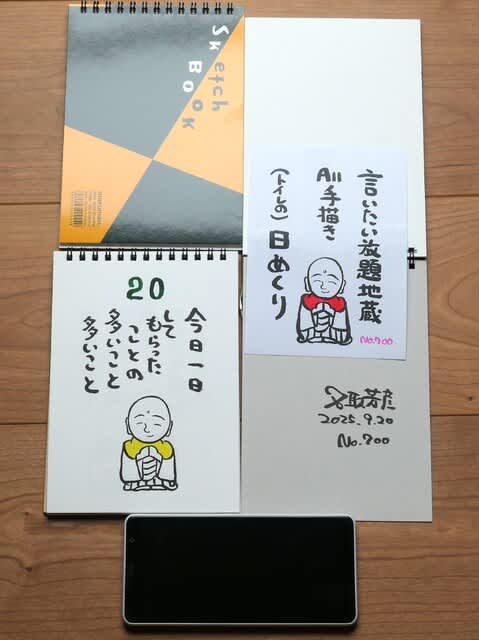 Sketch
Book
maruman
言いたい放題地蔵
All手描き
(トイレの)日めくり
No.700
20
今日一日
して
もらった
ことの
多いこと
多いこと
名取芳彦
2025.9.20
No.700